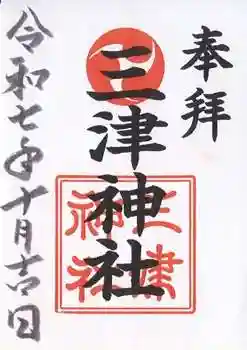 奉拝
三津神社
三津
神社
令和七年十月吉日